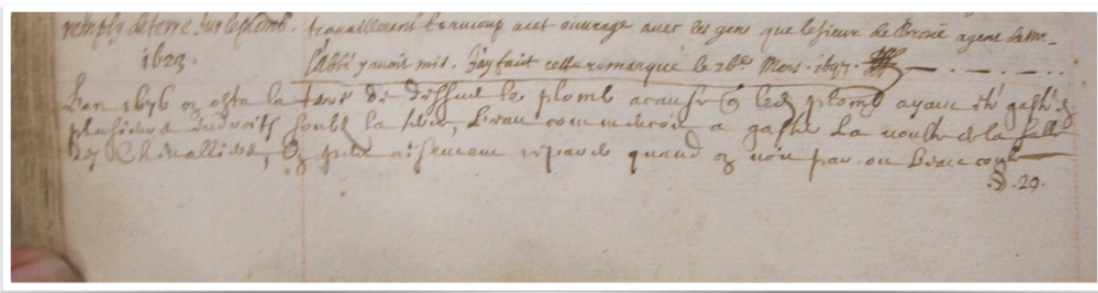 remply de terre sur le plomb. travaillerent beaucoup a cet ouvrage avec les gens que le sieur de Brouë agent de Mr.
1623. l'Abbé y avoit mis. J'ay fait cette remarque le 26e. Mars. 1697.
L'an 1676 on osta la terre de dessus le plomb a cause q le plomb ayant été gasté en
plusieurs endroits soubz la terre, l'eau commencoit a gaster la voulte de la salle
des Chevalliers, on peut aisement reparer quand on voit par ou l'eau coule
§. 29.